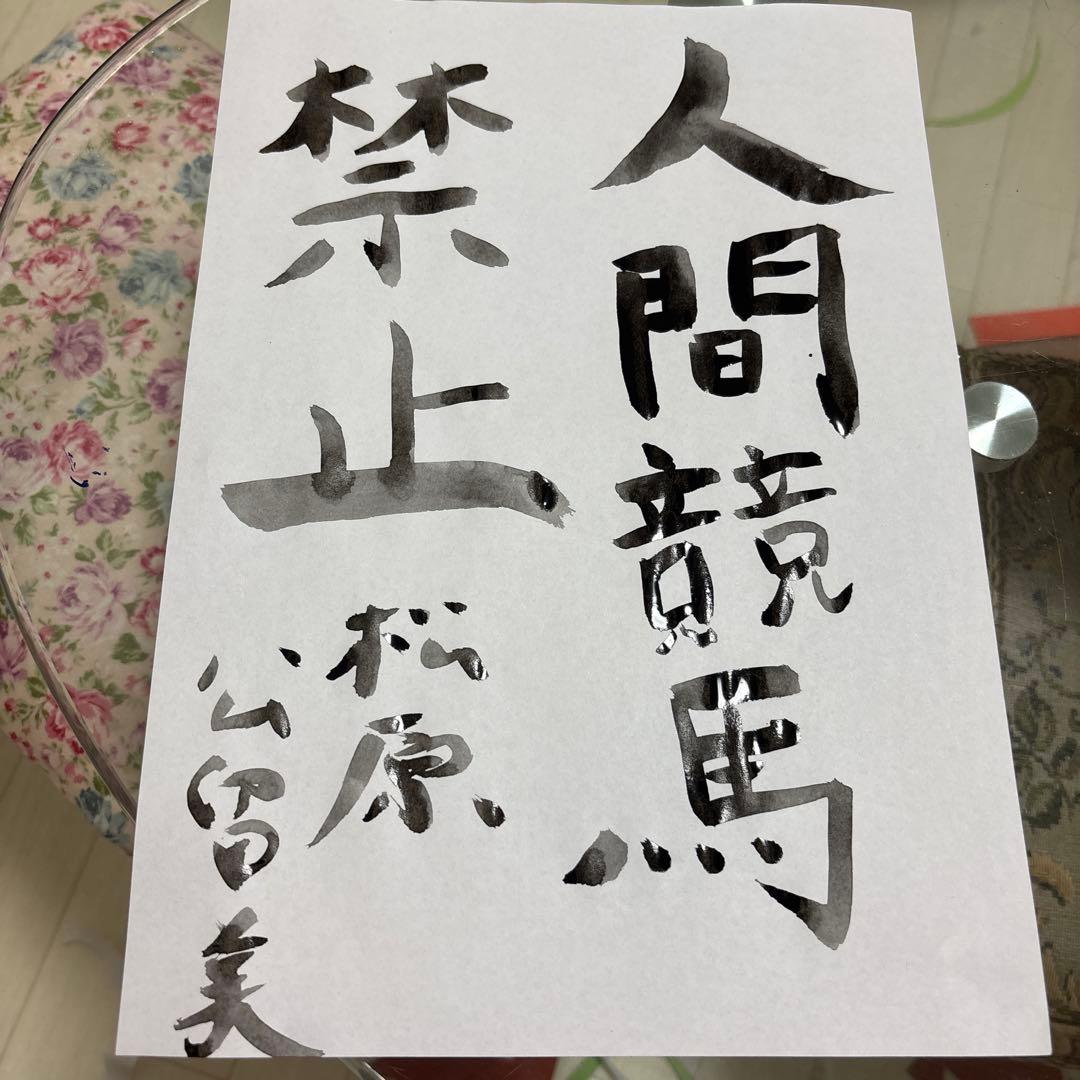 人間競馬
禁止
松原
公留美